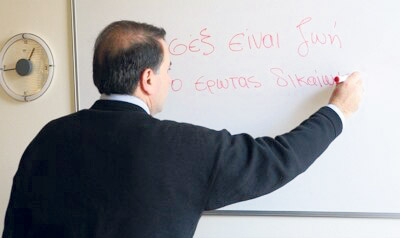 σεξ είναι ζωή
ο έρωτας δικαίω